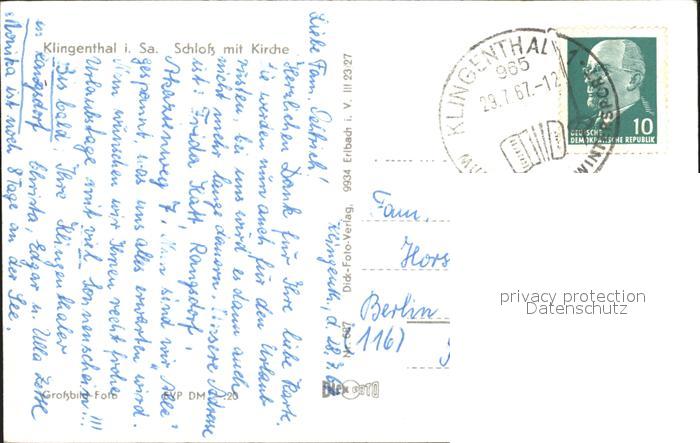 Klingenthal i. Sa. Schloß mit Kirche
Klingenthal, d. 28.7.67
Liebe Fam. Dettrich!
Herzlichen Dank für Ihre liebe Karte.
Sie werden nun auch für den Urlaub
rüsten, bei uns wird es dann auch
nicht mehr lange dauern. Unsere Adresse
ist: Frieda Katt, Rangsdorf,
weg 7. Nun sind wir "Alle"
gespannt, was uns alles erwarten wird.
Nun wünschen wir Ihnen recht frohe
Urlaubstage mit viel Sonnenschein!!!
Bis bald, Ihre Klingenthaler
in Rangsdorf Christa, Edgar u. Ulla
Monika ist noch 8 Tage an der See.
Großbild-Foto EVP DM -.20
Dick-Foto-Verlag, 9934 Erlbach i. V. III 23 27
DICK FOTO
KLINGENTHAL 1
965
29.7.67.-12
WINTERSPORT
10
DEUTSCHE
DEMOKRATISCHE REPUBLIK
Fam.
Hors
Berlin
(116)
privacy protection
Datenschutz